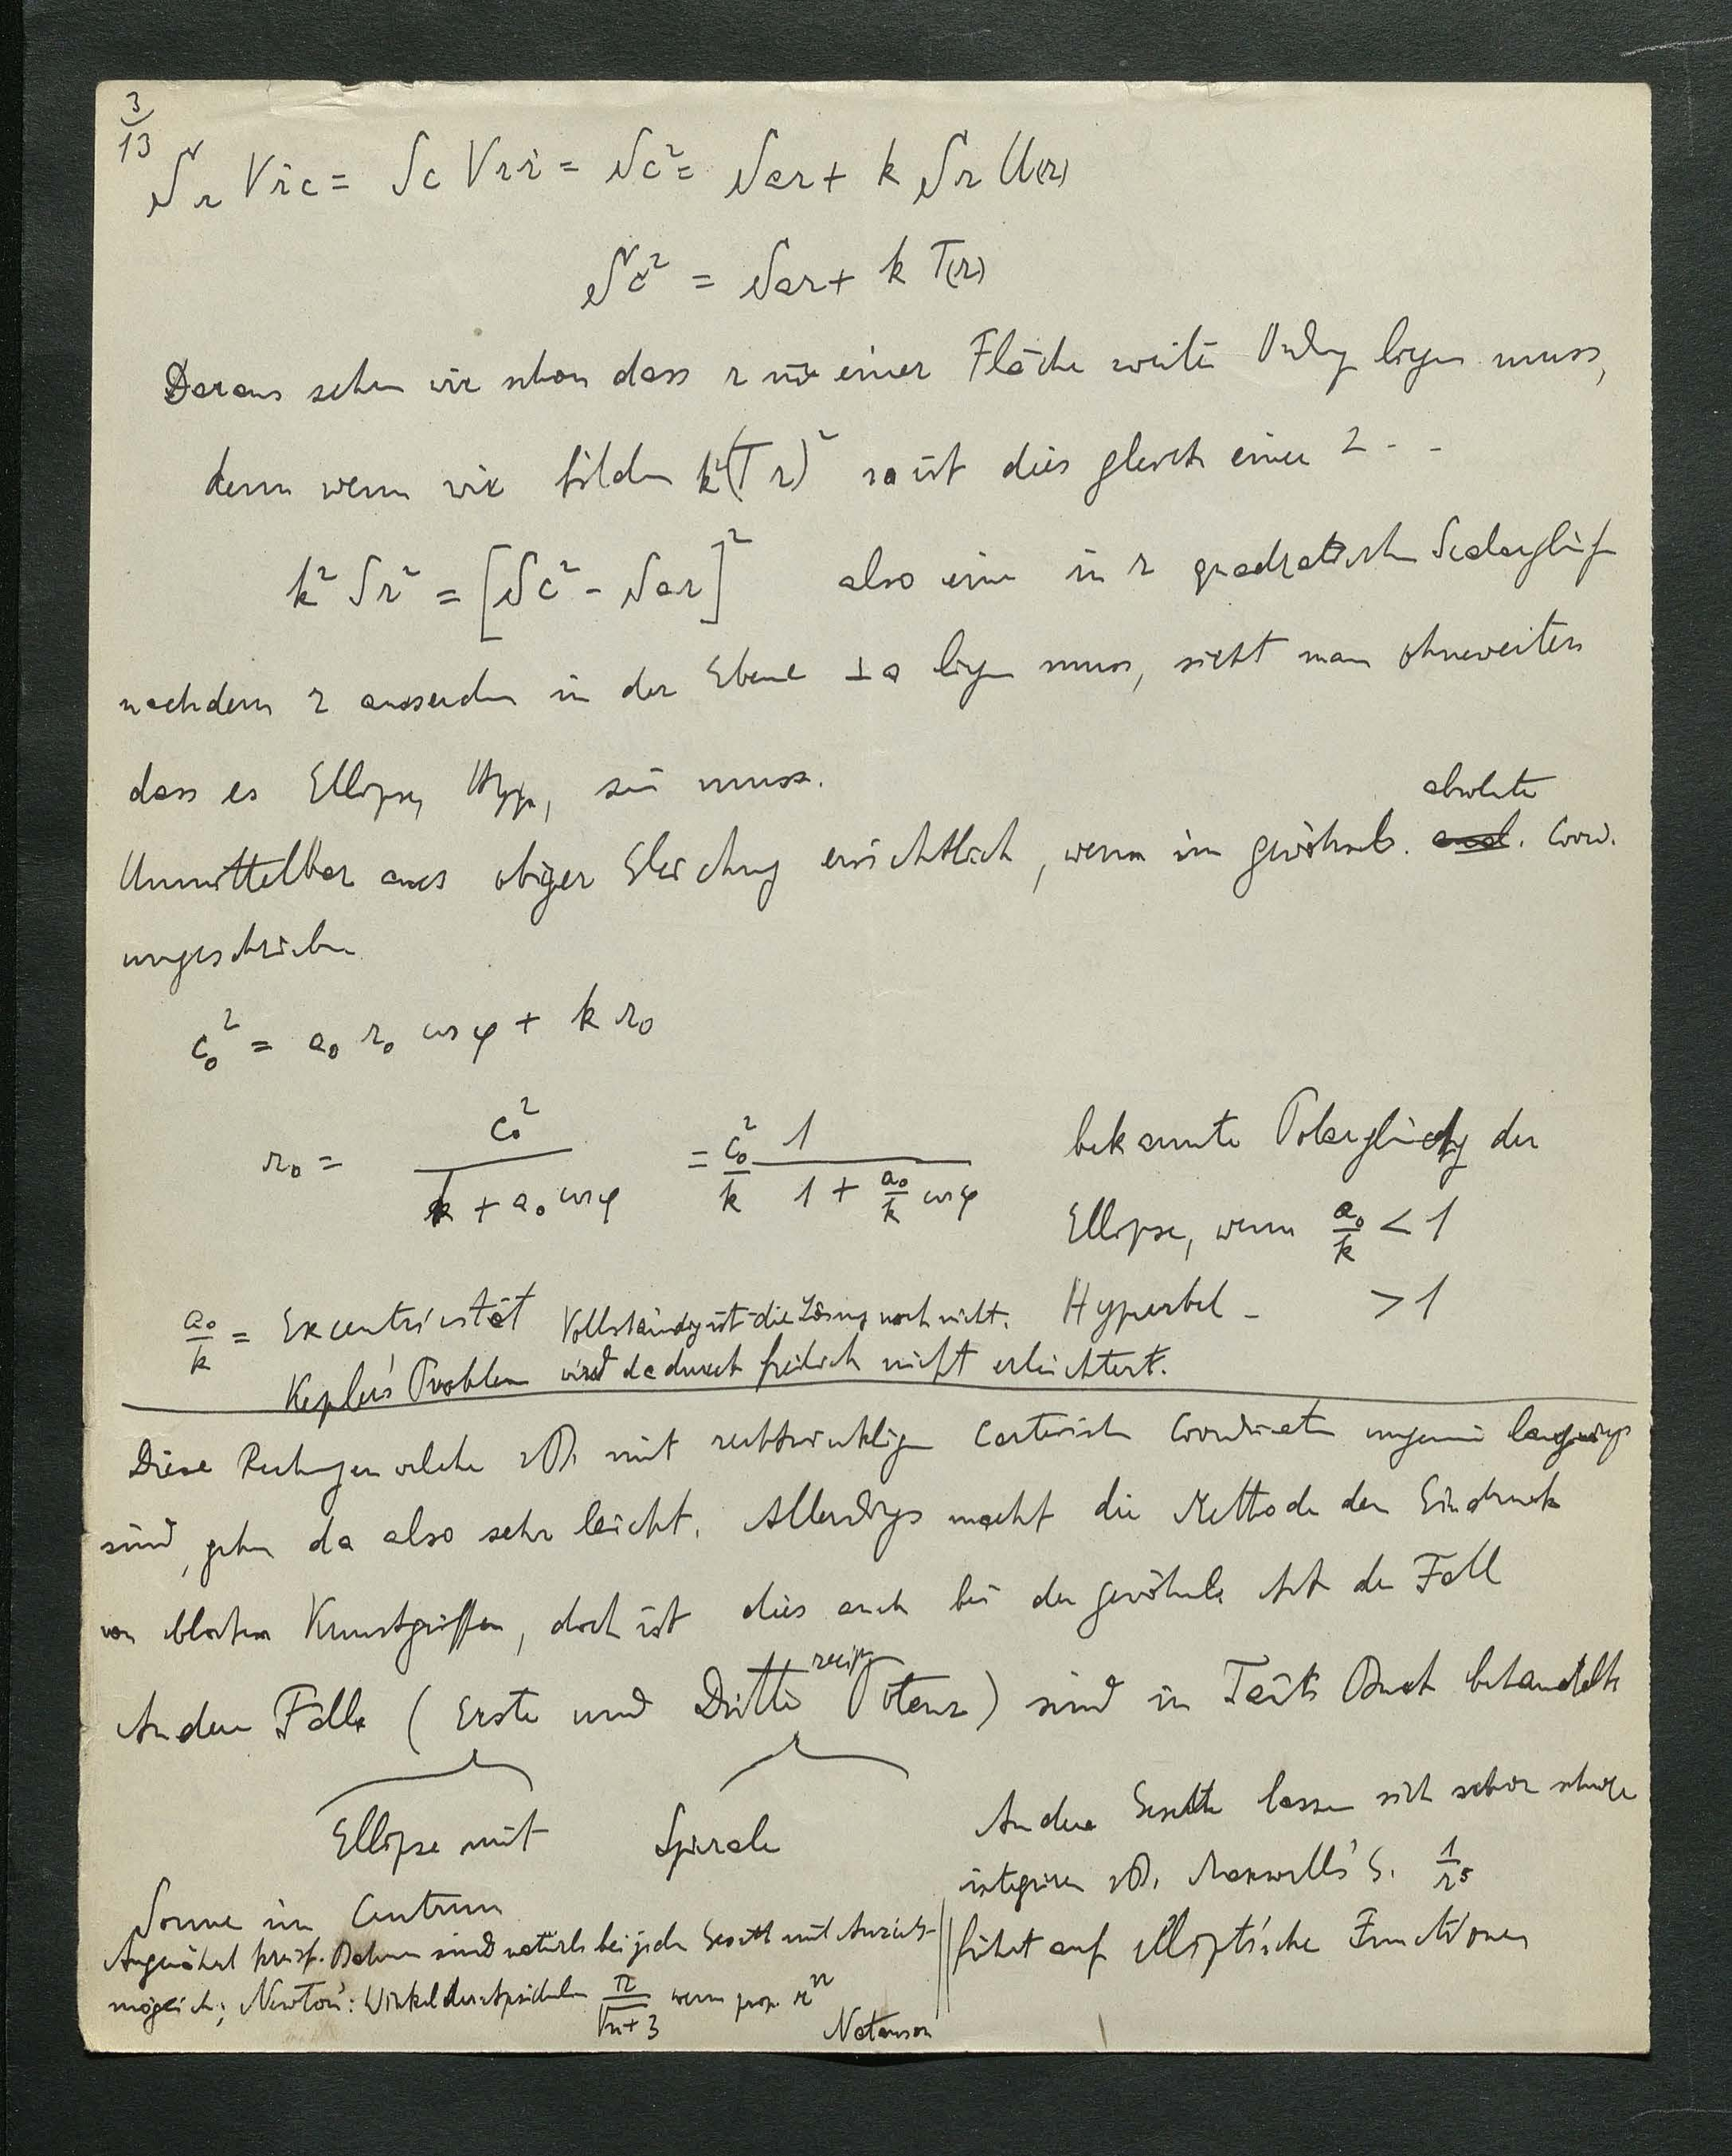 3/13
S r V ṙ c = S c V r ṙ = S c² = S a r + k S r U(r)
S c² = S a r + k T(r)
Daraus sehen wir schon dass r einer Fläche zweiter Ordng liegen muss,
denn wenn wir bilden k²(T r)² so ist dies gleich einer 2 - -
k² S r² = [S c² - S a r]² also eine in r quadratische Scalargleichg
nachdem r ausserdem in der Ebene ⊥ a liegen muss, sieht man ohneweiters
dass es Ellipse, Hyp, sein muss.
Unmittelbar aus obiger Gleichung ersichtlich, wenn in gewöhnl. absolute Coord.
umgeschrieben
c₀² = a₀ r₀ cos φ + k r₀
r₀ = c₀² / (k + a₀ cos φ) = c₀²/k · 1 / (1 + a₀/k cos φ) bekannte Polargleichg der
Ellipse, wenn a₀/k < 1
Hyperbel - > 1
a₀/k = Excentricität Vollständig ist die Lösung noch nicht.
Kepler's Problem wird dadurch freilich nicht erleichtert.
Diese Rechnungen welche zB. mit rechtwinkligen Cartesischen Coordinaten ungemein langwierig
sind, gehen da also sehr leicht. Allerdings macht die Methode den Eindruck
von blossen Kunstgriffen, doch ist dies auch bei der gewöhnl. Art der Fall
Andere Fälle (Erste und Dritte recip. Potenz) sind in Tait's Buch behandelt
Ellipse mit Spirale
Sonne im Centrum
Andere Gesetze lassen sich schwer
integriren zB. Maxwell's G. 1/r⁵
führt auf elliptische Functionen
Angenähert kreisf. Bahnen sind natürl. bei jedem Gesetz mit Anzieh-
möglich; Newton: Winkel der Apsiden π/√(n+3) wenn prop. rⁿ
Natanson